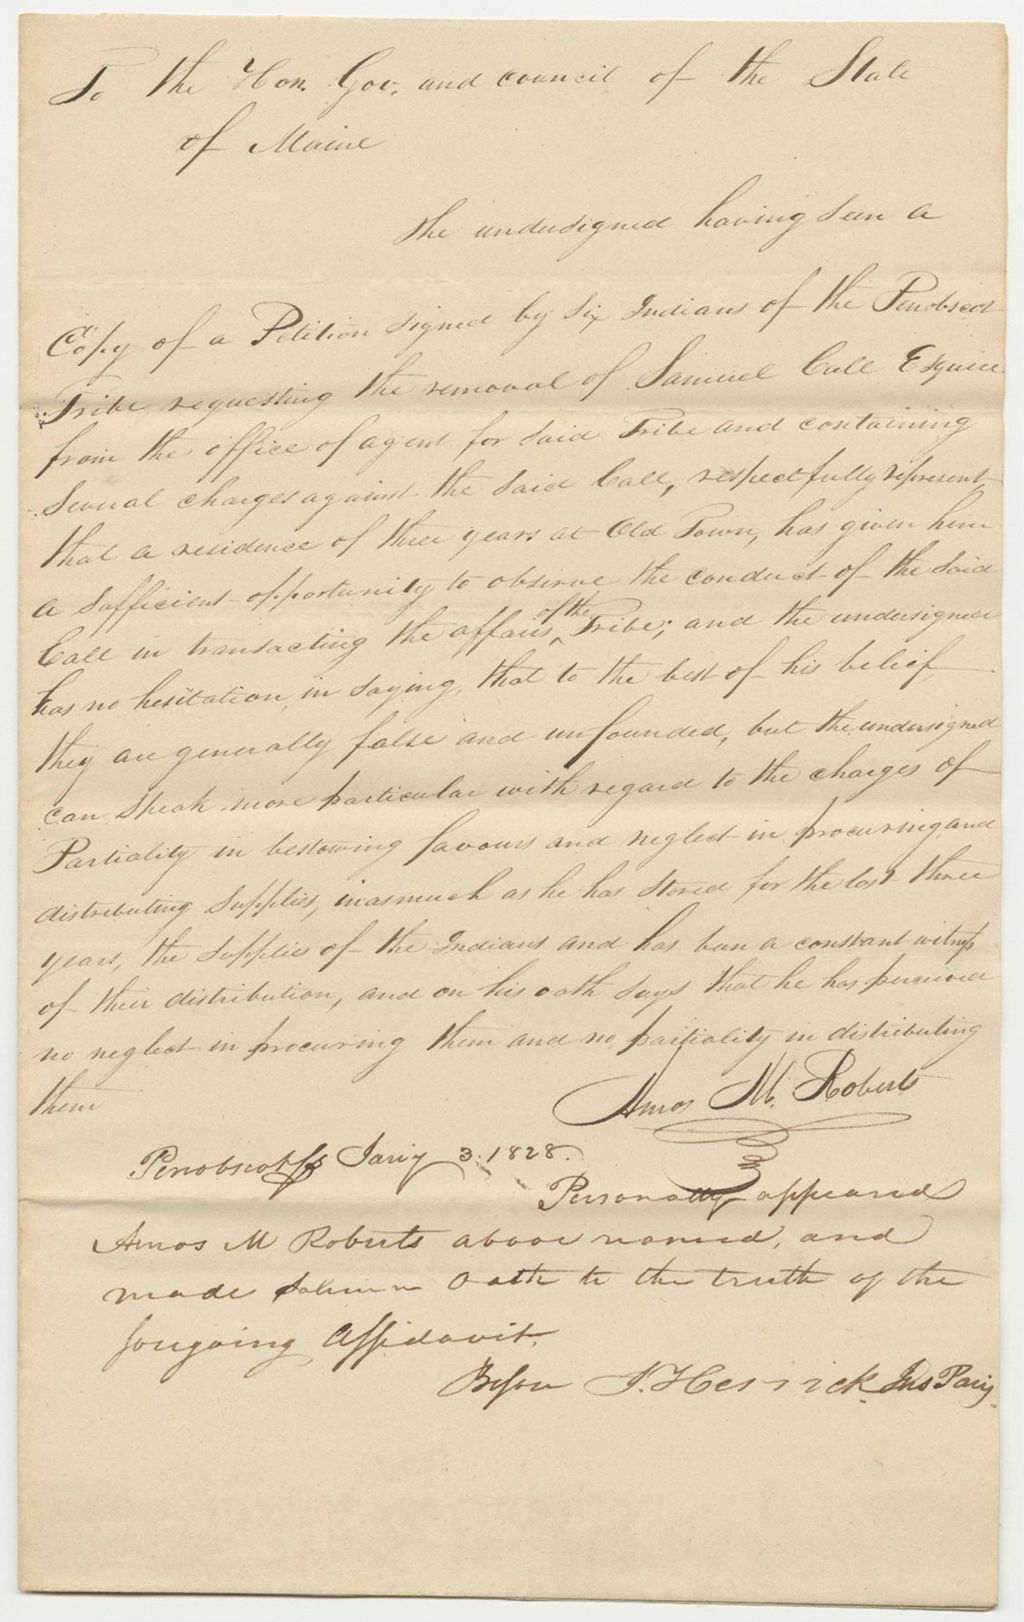 To the Hon. Gov. and council of the State
of Maine
The undersigned having seen a
Copy of a Petition signed by six Indians of the Penobscot
Tribe, requesting the removal of Samuel Call Esquire
from the office of agent for said Tribe and containing
Several charges against the said Call, respectfully represent
that a residence of three years at Old Town, has given him
a sufficient opportunity to observe the conduct of the said
Call in transacting the affairs of the Tribe; and the undersigned
has no hesitation, in saying, that to the best of his belief
they are generally false and unfounded, but the undersigned
can speak more particular with regard to the charges of
Partiality in bestowing favours and neglect in procuring and
distributing Supplies, inasmuch as he has stored for the last three
years, the supplies of the Indians and has been a constant witness
of their distribution, and on his oath says that he has perceived
no neglect in procuring them and no partiality in distributing
them
Amos M. Roberts
Penobscot ss Jan'y 3. 1828.
Personally appeared
Amos M Roberts above named, and
made solemn Oath to the truth of the
foregoing Affidavit.
Before J. Herrick Jus Pacis